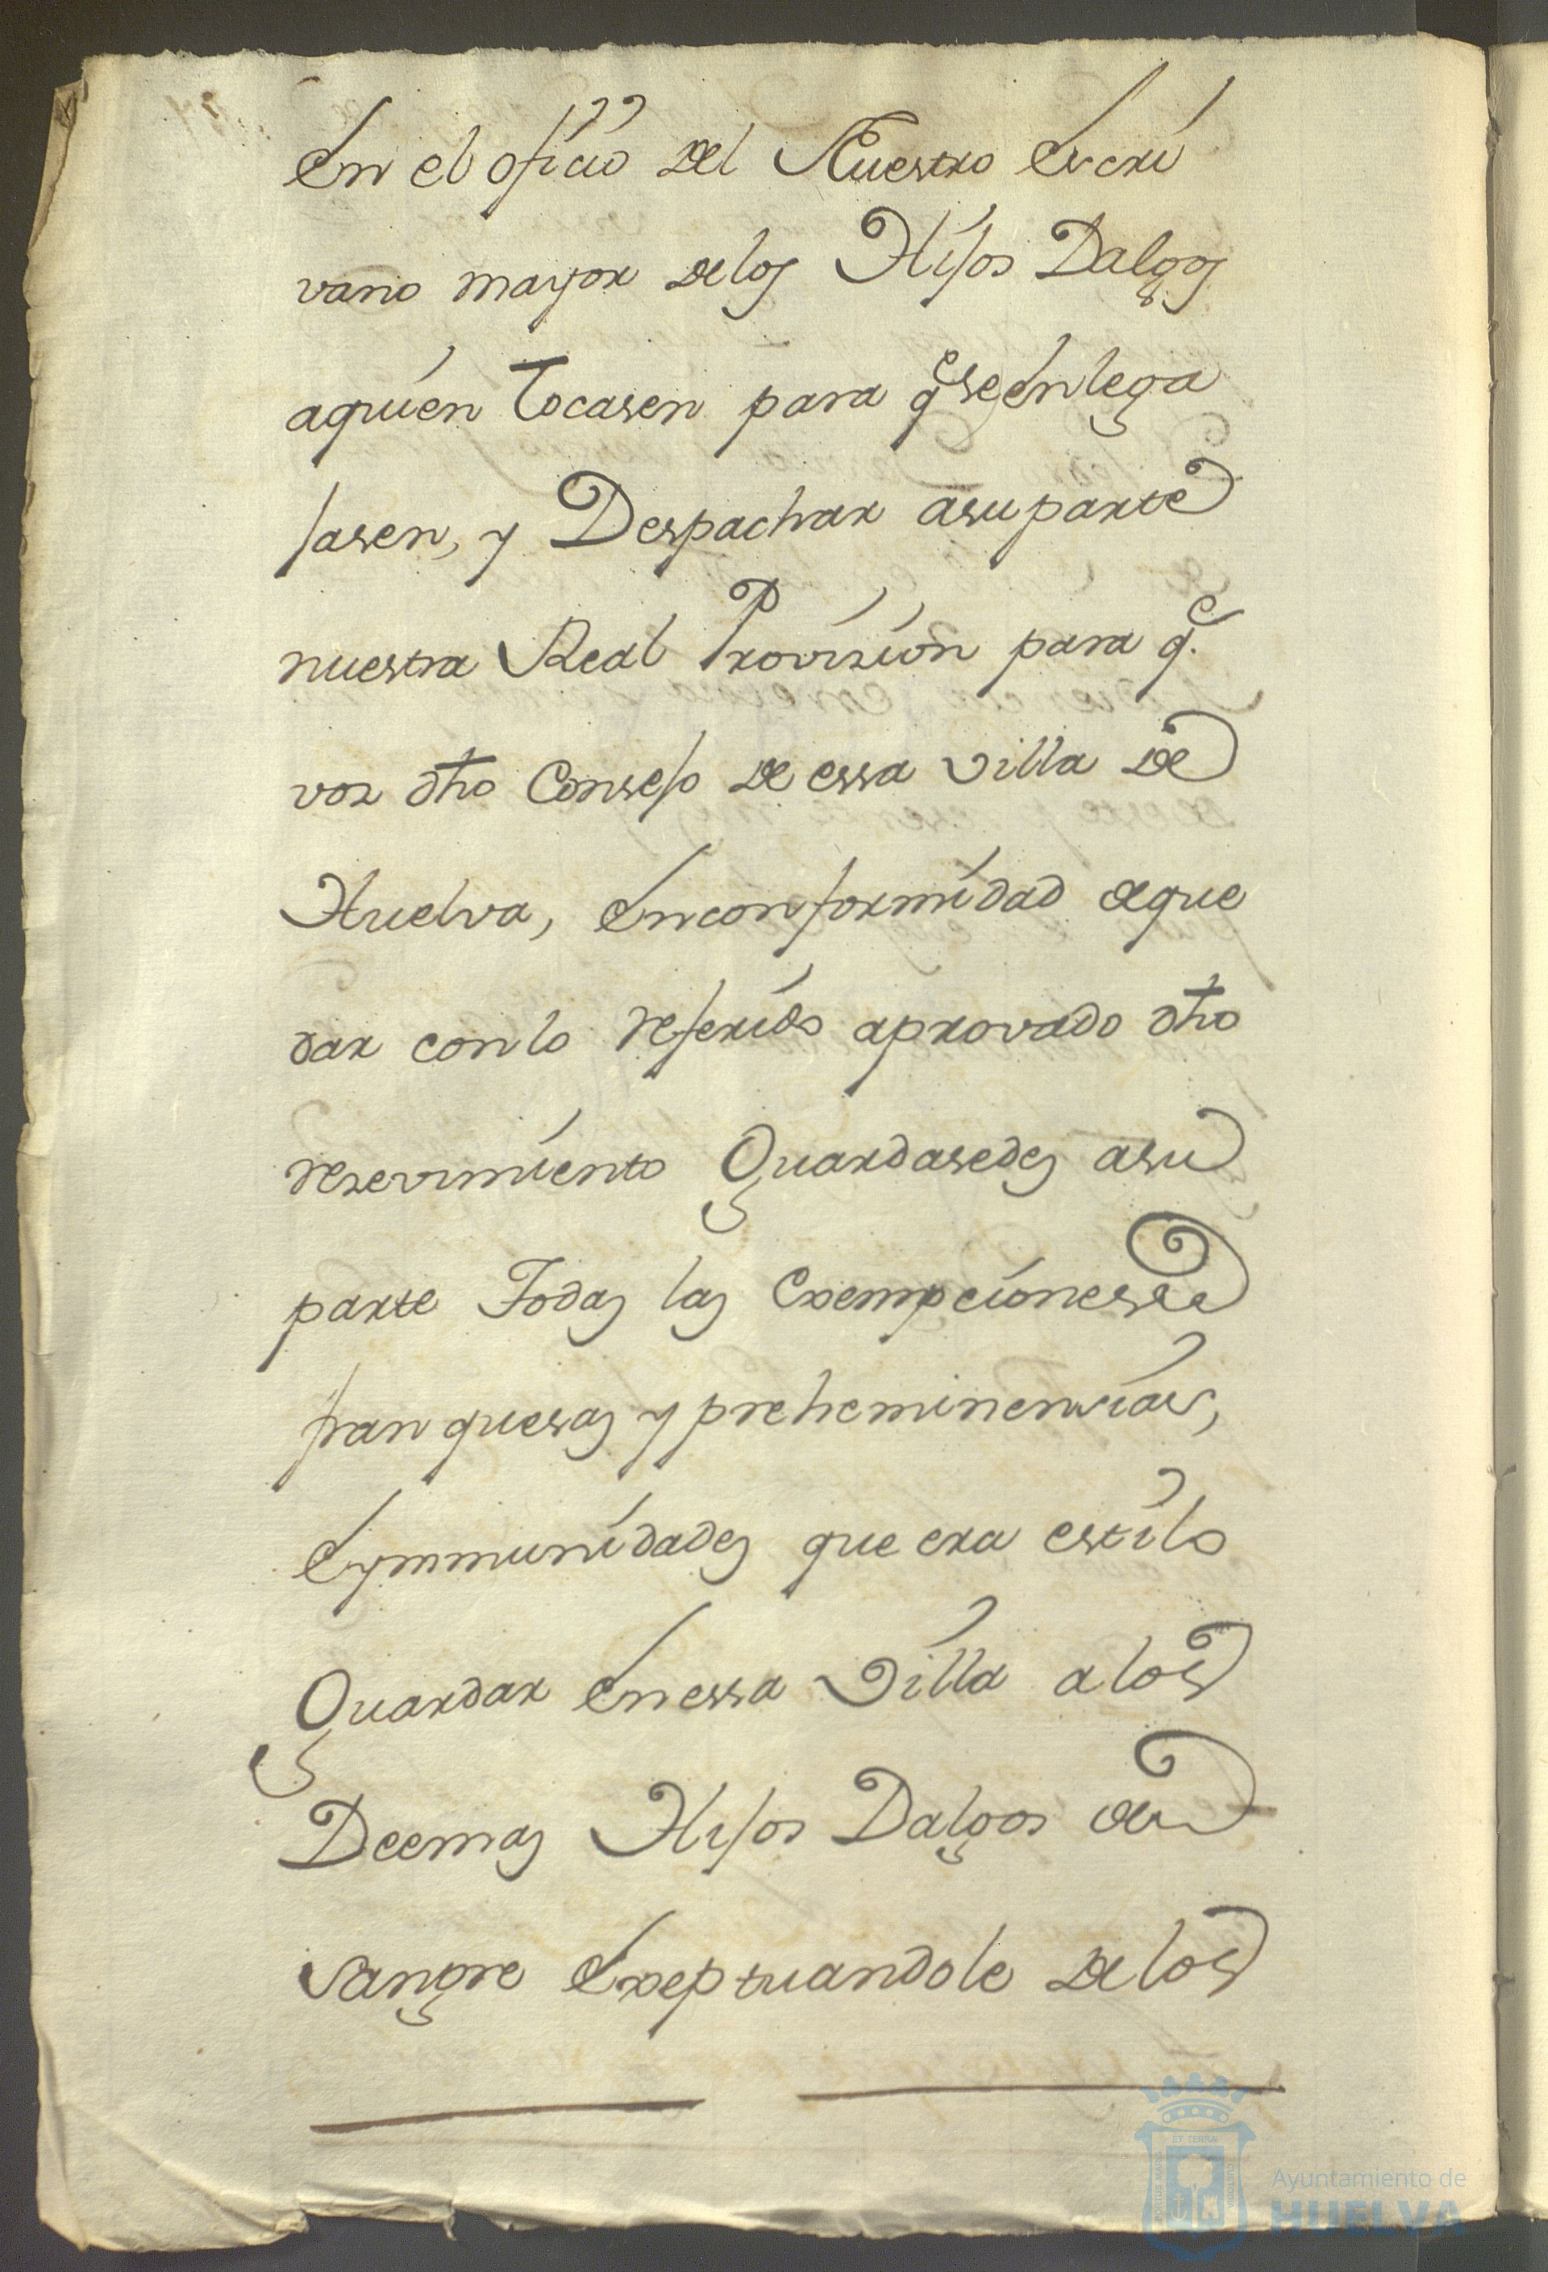 En el oficio del Nuestro Escri
vano mayor delos Hijos Dalgos
aquien tocasen para q.e se enlega
jasen, y Despachar asuparte
nuestra Real Provision para q.e
vos dho Consejo de essa villa de
Huelva, enconformidad aque
dar conlo referido aprovado dho
resevimiento Guardasedes asu
parte Todas las Exempciones
franquesas y preheminensias,
Eymmunidades que era estilo
Guardar Enessa Villa alos
Deemas Hijos Dalgos de
Sangre Exeptuandole delos
Ayuntamiento de
HUELVA